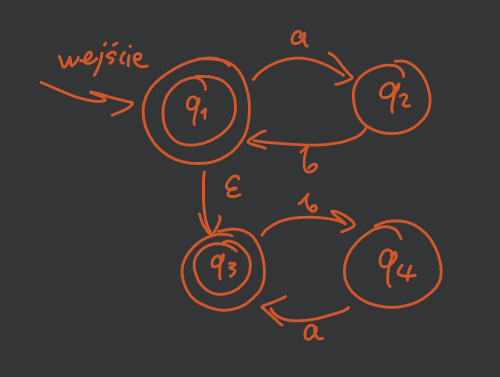 wejście
a
q1
q2
b
ε
b
q3
q4
a